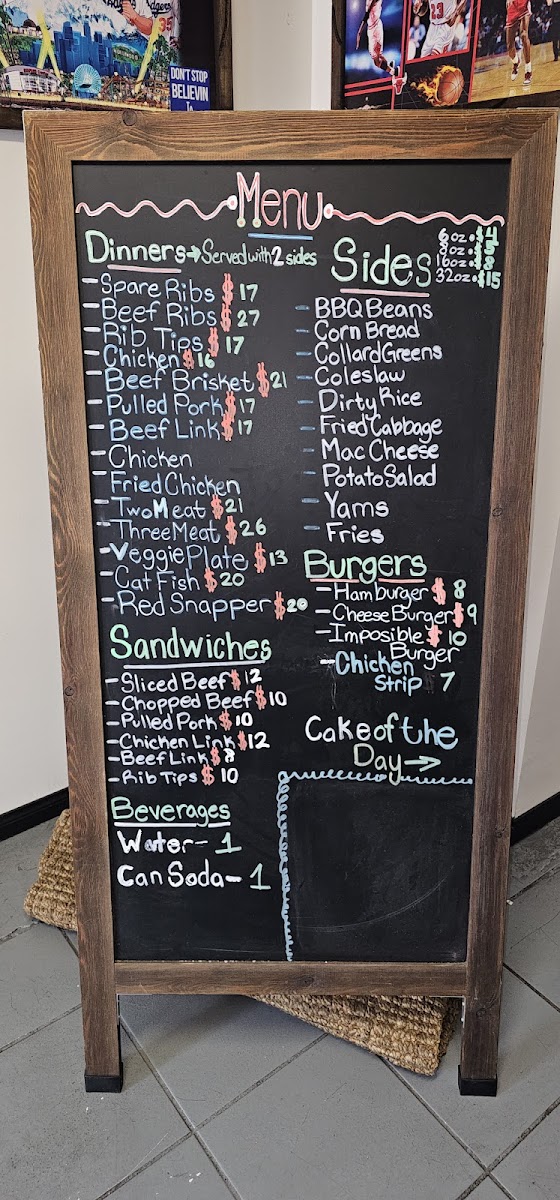 DON'T STOP
BELIEVIN
To
35
Menu
Dinners→Served with 2 sides
- Spare Ribs $17
- Beef Ribs $27
- Rib Tips $17
- Chicken $16
- Beef Brisket $21
- Pulled Pork $17
- Beef Link $17
- Chicken
Fried Chicken
- Two Meat $21
- Three Meat $26
- Veggie Plate $13
- Cat Fish $20
- Red Snapper $20
Sandwiches
- Sliced Beef $12
- Chopped Beef $10
- Pulled Pork $10
- Chicken Link $12
- Beef Link $8
- Rib Tips $10
Beverages
Water - 1
Can Soda - 1
Sides
6oz.
8oz.
16oz.
32oz. $15
- BBQ Beans
- Corn Bread
- Collard Greens
- Coleslaw
- Dirty Rice
- Fried Cabbage
- Mac Cheese
- Potato Salad
- Yams
- Fries
Burgers
- Hamburger $8
- Cheese Burger $9
- Imposible $10
Burger
- Chicken
Strip 7
Cake of the
Day→